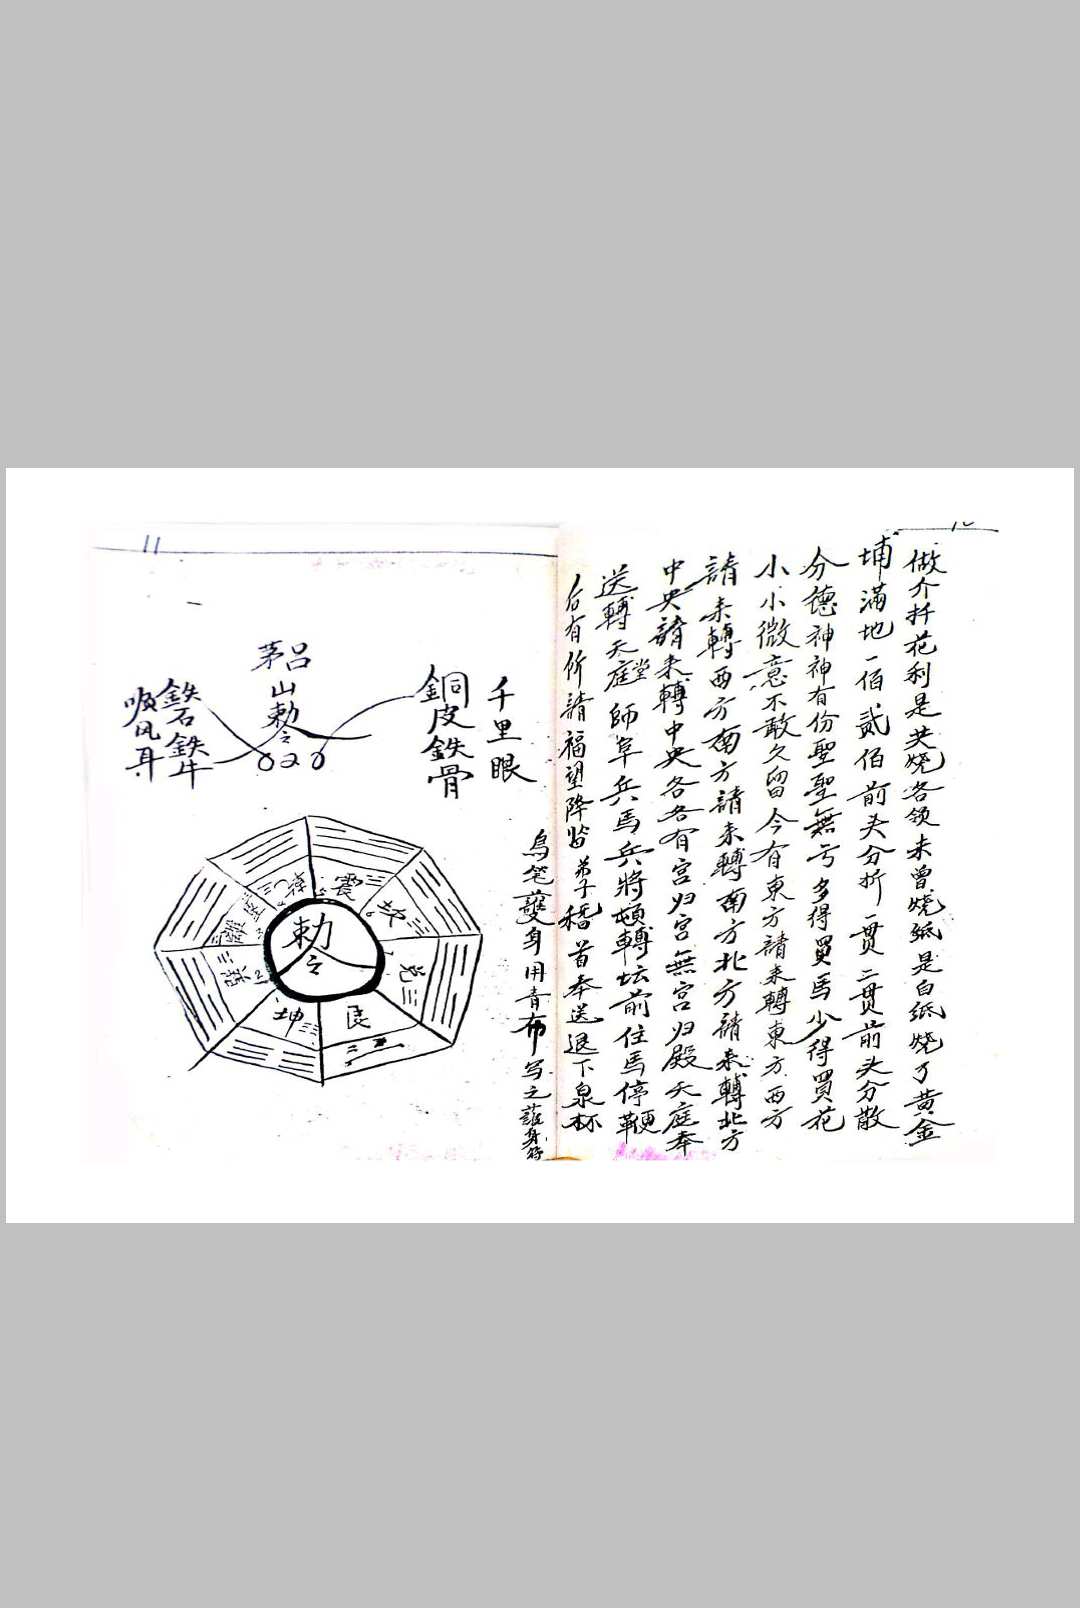 做介扦花利是共燒各领未曾燒纸是白纸燒了黃金
埔滿地一佰贰佰前头分折一贯二贯前头分散
分德神神有份聖聖無亏多得買馬少得買花
小小微意不敢久留今有東方請来轉東方西方
請来轉西方南方請来轉南方北方請来轉北方
中央請来轉中央各各有宫归宫無宫归殿天庭奉
送轉天庭堂師阜兵馬兵將頓轉坛前住馬停鞭
后有所請福望降监弟子稽首奉送退下泉杯
鳥笔護身用青布写之護身符
11
千里眼
銅皮鉄骨
茅吕
山勅令
鉄石鉄牛
順风耳
勅令
乾
震
坎
兑
艮
坤
巽
離